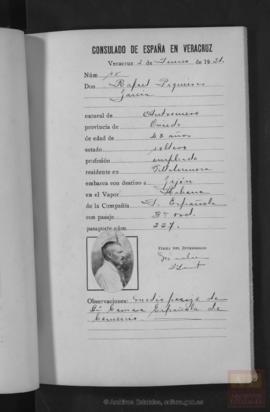 CONSULADO DE ESPAÑA EN VERACRUZ
Veracruz 2 de Junio de 1931.
Núm.
Don Rafael
García
natural de
provincia de Oviedo
de edad de 48 años
estado soltero
profesión empleado
residente en
embarca con destino a Gijón
en el Vapor Habana
de la Compañía T. Española
con pasaje 3ª ord.
pasaporte núm. 227.
FIRMA DEL INTERESADO
Observaciones: medio pasaje de
la Camara Española de
Comercio.
© Archivos Estatales, cultura.gob.es